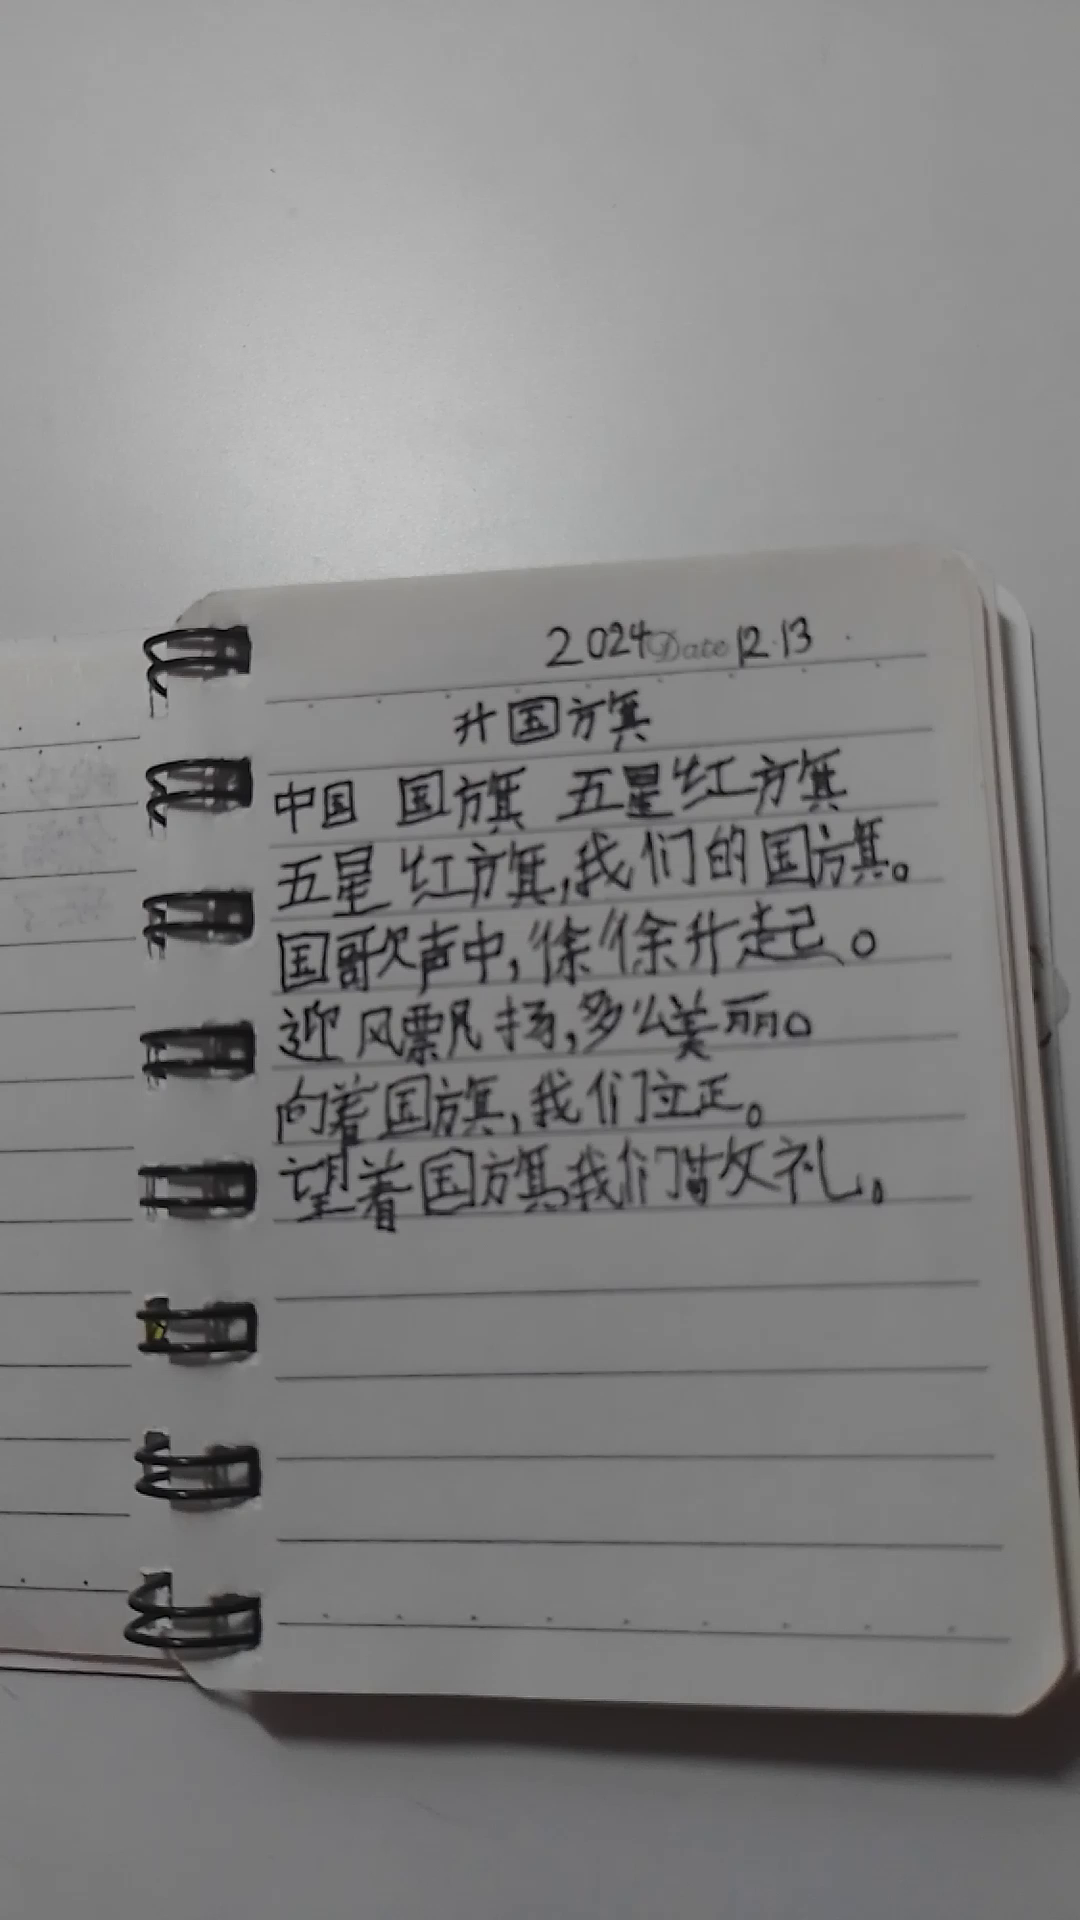 2024 Date 12.13
升国旗
中国 国旗 五星红旗
五星红旗,我们的国旗。
国歌声中,徐徐升起。
迎风飘扬,多么美丽。
向着国旗,我们立正。
望着国旗,我们敬礼。